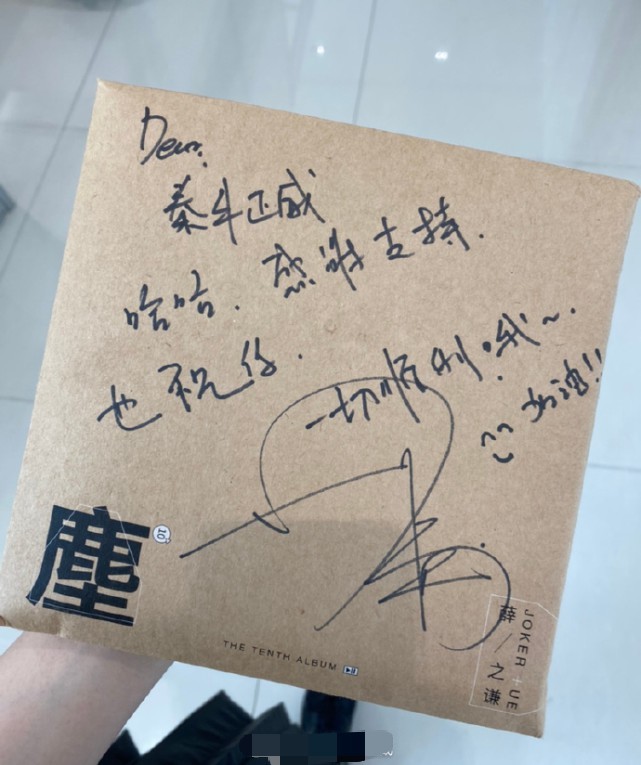 Dear:
秦牛正威
哈哈. 感谢支持.
也祝你. 一切顺利哦~.
加油!!
塵
10
THE TENTH ALBUM
JOKER XUE
薛之谦